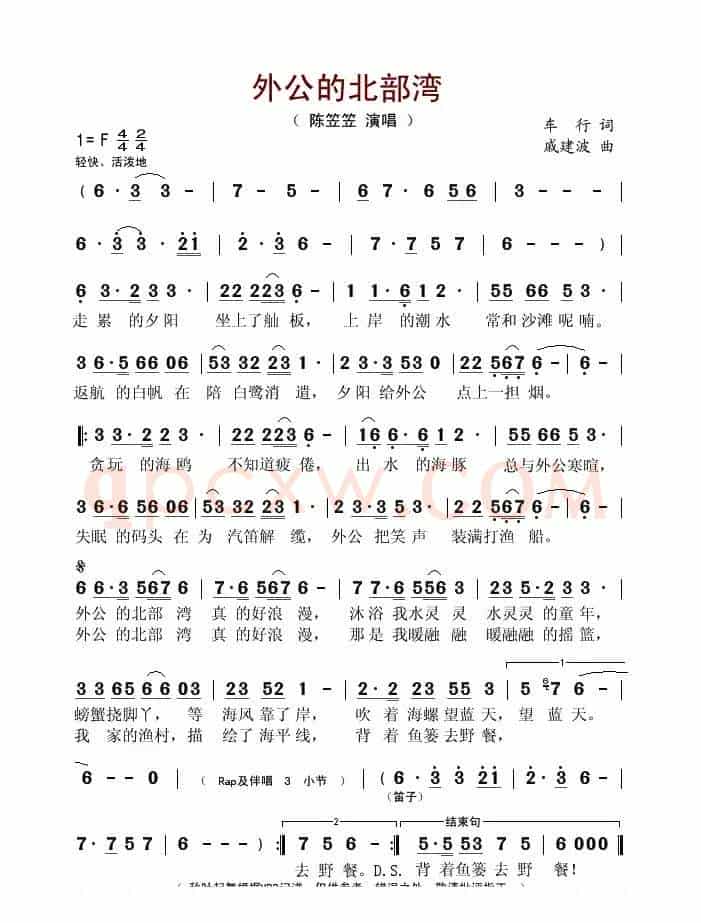 外公的北部湾
（ 陈笠笠 演唱 ）
1= F 4/4 2/4
车 行 词
轻快、活泼地
戚建波 曲
( 6 · 3 3 - | 7 - 5 - | 6 7 · 6 7 5 6 | 3 - - - |
6 · 3 3 · 2 1 | 2 · 3 6 - | 7 · 7 5 7 | 6 - - - )|
6 3 · 2 3 3 | 2 2 2 2 3 6 - | 1 1 · 6 1 2 | 5 5 6 6 5 3 - |
走 累 的夕阳 坐上了舢 板， 上 岸 的潮水 常和沙滩呢喃。
3 6 · 5 6 6 0 6 | 5 3 3 2 2 3 1 · | 2 3 · 3 5 3 0 | 2 2 5 6 7 6 - | 6 - |
返航 的白帆 在 陪 白鹭消 遣， 夕阳给外公 点上一担 烟。
‖: 3 3 · 2 2 3 | 2 2 2 2 3 6 · | 1 6 6 · 6 2 - | 5 5 6 6 5 3 · |
贪玩 的海鸥 不知道疲 倦， 出 水 的海豚 总与外公寒暄，
3 6 · 6 5 6 0 6 | 5 3 3 2 2 3 1 · | 2 3 · 2 2 3 | 2 2 5 6 7 6 - | 6 - - - |
失眠 的码头 在 为 汽笛解 缆， 外公 把笑声 装满打渔 船。
𝄋
6 6 · 3 5 6 7 6 | 7 · 6 5 6 7 6 · | 7 7 · 6 5 5 6 3 | 2 3 5 · 2 3 · |
外公 的北部 湾 真 的好浪 漫， 沐浴 我水灵 灵 水灵灵 的童 年，
外公 的北部 湾 真 的好浪 漫， 那是 我暖融 融 暖融融 的摇 篮，
1
3 3 6 5 6 6 0 3 | 2 3 5 2 1 - | 2 · 2 2 3 5 2 3 | 5 7 6 - |
螃蟹挠脚丫， 等 海风 靠了 岸， 吹 着 海螺 望蓝 天， 望 蓝 天。
我 家的渔村，描 绘了 海平 线， 背 着 鱼篓 去野 餐，
6 - - 0 | （ Rap及伴唱 3 小节 ） | ( 6 · 3 3 2 1 | 2 · 3 6 - |
（笛子）
2
结束句
7 · 7 5 7 | 6 - - - ) :‖ 7 5 6 - :‖ 5 · 5 5 3 7 5 | 6 0 0 0 ‖
去 野 餐。D.S. 背 着鱼篓 去 野 餐！
qpcxw.com